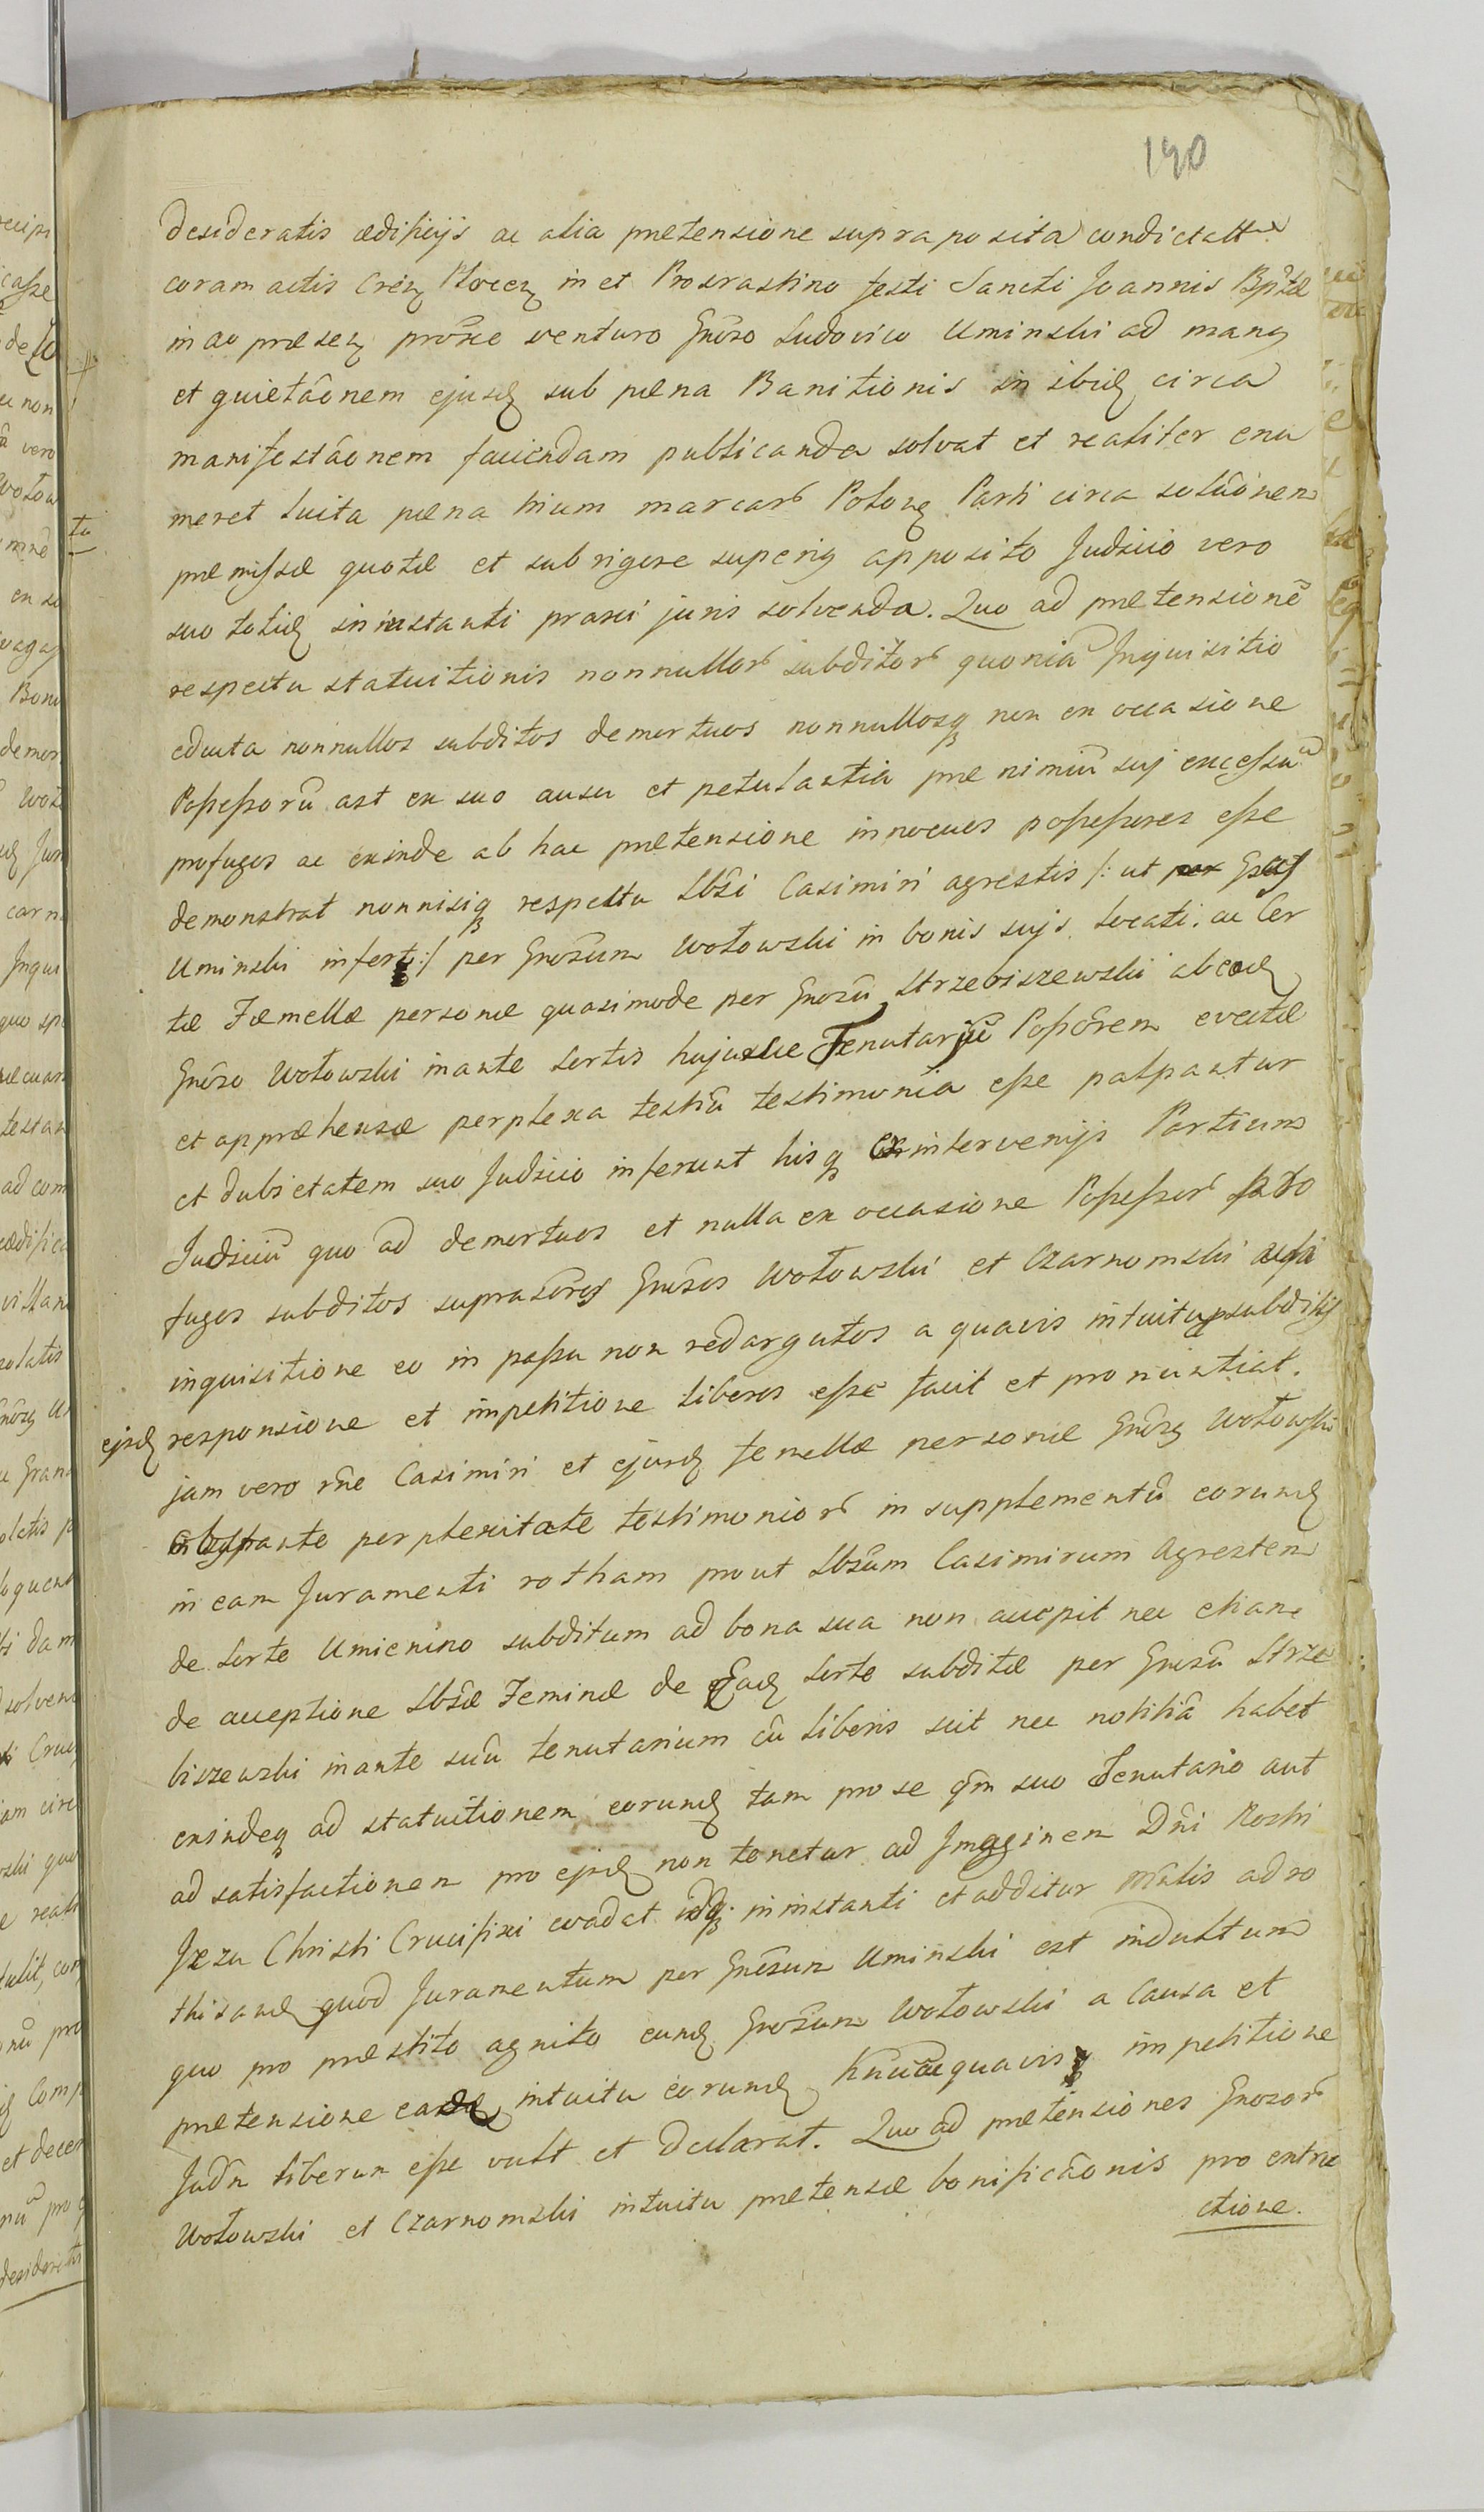 190
desideratis ædificijs ac alia prætensione supraposita condictatt
coram actis Crēz Plocēz in et Procrastino festi Sancti Joannis Bptæ
in ao præseñ prōxe venturo Gnōso Ludovico Uminski ad mang
et quietāōnem ejusđ sub pæna Banitionis in ibiđ circa
manifestāōnem faciendam publicanda solvat et realiter enu
meret luita pæna trium marcarō Poloñ Parti circa solūōnem
præmissæ quotæ et sub rigore superiq apposito Judicio vero
suo totiđ in instanti praxi juris solvenda. Quo ad prætensionē
respectu statuitionis nonnullorō subditorō quoniā Inquisitio
educta nonnullos subditos demortuos nonnullosq non ex occasione
Possessorū ast ex suo ausu et petulantia præ nimiū suj excessū
profugos ac exinde ab hac prætensione innocuos possessores esse
demonstrat nonnisiq respectu Lbśi Casimiri agrestis /: ut Gsus
Uminski infert :/ per Gnosum Wołowski in bonis sujs locati. ac Cer
tæ Fæmellæ personæ quasimode per Gnosū Strzebiszewski ab eođ
Gnōso Wołowski in ante sortis hujusce Tenutariū Possōrem evectæ
et appræhensæ perplexa testiū testimonia esse palpantur
et dubietatem suo Judicio inferunt hisq ex intervenijs Partium
Judiciū quo ad demortuos et nulla ex occasione Possessorō pro
fugos subditos suprasōros Gnōsos Wołowski et Czarnomski
inquisitione eo in passu non redargutos a quavis intuitu subditis
ejsđ responsione et impetitione liberos esse facit et pronuntiat.
jam vero rñe Casimiri et ejusđ femellæ personæ Gnōsq Wołowski
obstante perplexitate testimoniorō in supplementū eorumđ
in eam Juramenti rotham prout Lbśum Casimirum Agrestem
de sorte Umienino subditum ad bona sua non accepit nec etiam
de acceptione Lbśæ Feminæ de Eađ sorte subditæ per Gnosū Strze
biszewski in ante suū tenutarium cū liberis scit nec notitiā habet
exindeq ad statuitionem eorumđ tam pro se qm suo Tenutario aut
ad satisfactionem pro ejsđ non tenetur ad Imaginem Dñi Nostri
Jezu Christi Crucifixi evadet in instanti et additur adro
thisanđ quod Juramentum per Gnōsum Uminski est indultum
quo pro præstito agnito eunđ Gnōsum Wołowski a Causa et
prætensione eađ intuitu eorumđ quavis impetitione
Judñ liberum esse vult et declarat. Quo ad prætensiones Gnosorō
Wołowski et Czarnomski intuitu prætensæ bonificāōnis pro extru
ctione.